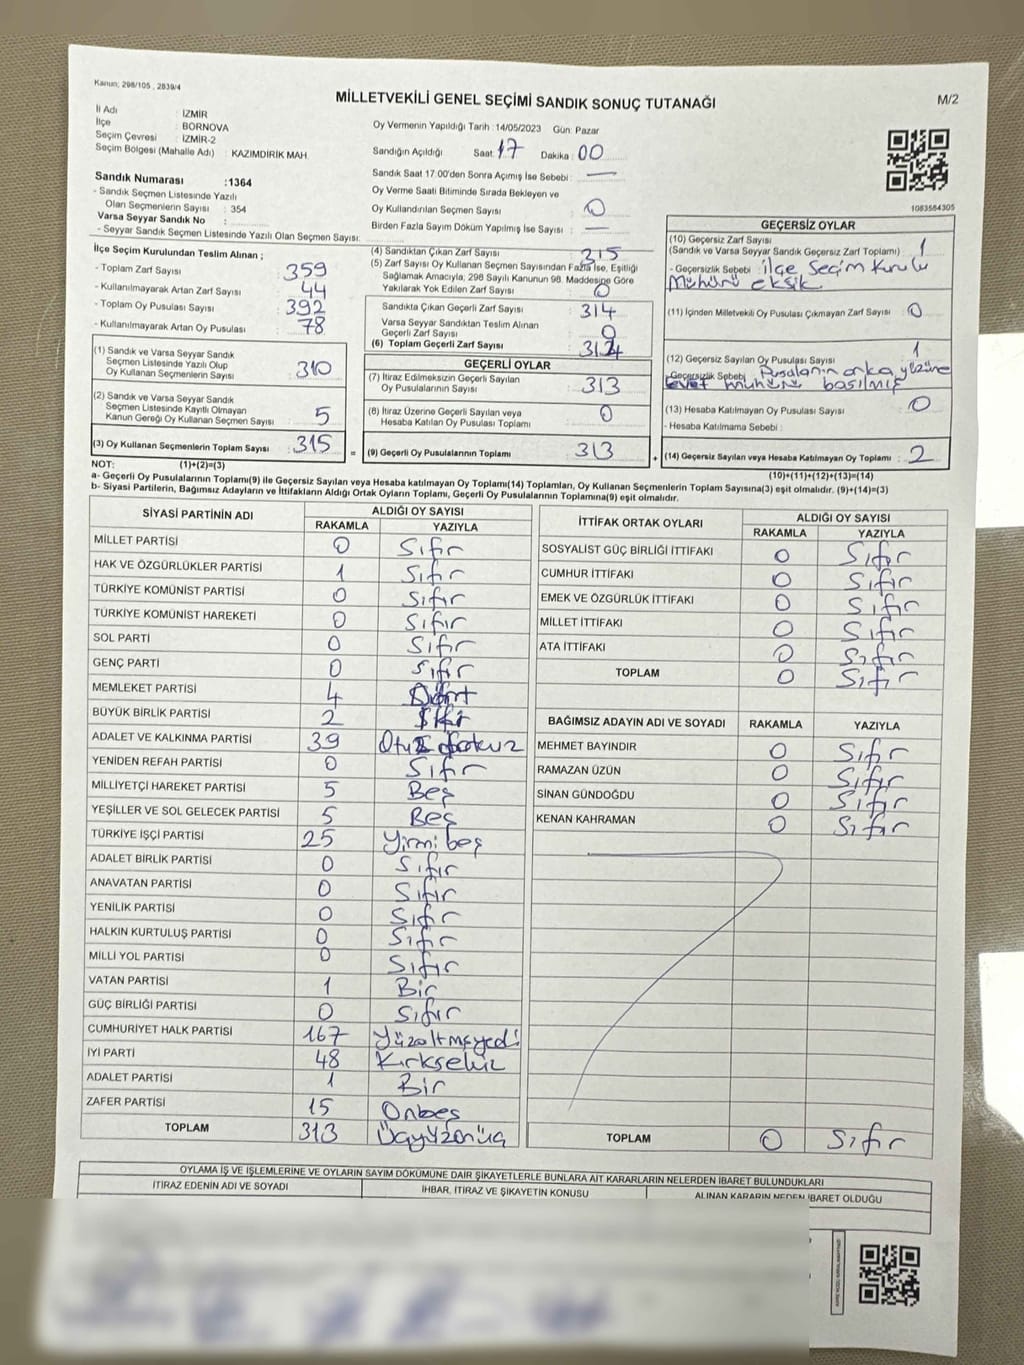 Kanun; 298/105 , 2839/4
MİLLETVEKİLİ GENEL SEÇİMİ SANDIK SONUÇ TUTANAĞI
M/2
İl Adı : İZMİR
İlçe : BORNOVA
Seçim Çevresi : İZMİR-2
Seçim Bölgesi (Mahalle Adı) : KAZIMDİRİK MAH.
Sandık Numarası :1364
- Sandık Seçmen Listesinde Yazılı
Olan Seçmenlerin Sayısı : 354
Varsa Seyyar Sandık No :
- Seyyar Sandık Seçmen Listesinde Yazılı Olan Seçmen Sayısı:
Oy Vermenin Yapıldığı Tarih :14/05/2023 Gün: Pazar
Sandığın Açıldığı Saat: 17 Dakika : 00
Sandık Saat 17.00'den Sonra Açımış İse Sebebi : —
Oy Verme Saati Bitiminde Sırada Bekleyen ve
Oy Kullandırılan Seçmen Sayısı : 0
Birden Fazla Sayım Döküm Yapılmış İse Sayısı : —
1083564305
İlçe Seçim Kurulundan Teslim Alınan ;
- Toplam Zarf Sayısı : 359
- Kullanılmayarak Artan Zarf Sayısı : 44
- Toplam Oy Pusulası Sayısı : 392
- Kullanılmayarak Artan Oy Pusulası : 78
(1) Sandık ve Varsa Seyyar Sandık
Seçmen Listesinde Yazılı Olup
Oy Kullanan Seçmenlerin Sayısı : 310
(2) Sandık ve Varsa Seyyar Sandık
Seçmen Listesinde Kayıtlı Olmayan
Kanun Gereği Oy Kullanan Seçmen Sayısı : 5
(3) Oy Kullanan Seçmenlerin Toplam Sayısı : 315
(4) Sandıktan Çıkan Zarf Sayısı : 315
(5) Zarf Sayısı Oy Kullanan Seçmen Sayısından Fazla İse, Eşitliği
Sağlamak Amacıyla, 298 Sayılı Kanunun 98. Maddesine Göre
Yakılarak Yok Edilen Zarf Sayısı : 0
Sandıkta Çıkan Geçerli Zarf Sayısı : 314
Varsa Seyyar Sandıktan Teslim Alınan
Geçerli Zarf Sayısı : 0
(6) Toplam Geçerli Zarf Sayısı : 314
GEÇERLİ OYLAR
(7) İtiraz Edilmeksizin Geçerli Sayılan
Oy Pusulalarının Sayısı : 313
(8) İtiraz Üzerine Geçerli Sayılan veya
Hesaba Katılan Oy Pusulası Toplamı : 0
= (9) Geçerli Oy Pusulalarının Toplamı : 313
GEÇERSİZ OYLAR
(10) Geçersiz Zarf Sayısı
(Sandık ve Varsa Seyyar Sandık Geçersiz Zarf Toplamı) : 1
- Geçersizlik Sebebi : ilçe Seçim Kurulu
Mührü eksik
(11) İçinden Milletvekili Oy Pusulası Çıkmayan Zarf Sayısı : 0
(12) Geçersiz Sayılan Oy Pusulası Sayısı : 1
- Geçersizlik Sebebi : Pusulanın arka yüzüne
evet mühürü basılmış
(13) Hesaba Katılmayan Oy Pusulası Sayısı : 0
- Hesaba Katılmama Sebebi :
+ (14) Geçersiz Sayılan veya Hesaba Katılmayan Oy Toplamı : 2
NOT: (1)+(2)=(3)
(10)+(11)+(12)+(13)=(14)
a- Geçerli Oy Pusulalarının Toplamı(9) ile Geçersiz Sayılan veya Hesaba katılmayan Oy Toplamı(14) Toplamları, Oy Kullanan Seçmenlerin Toplam Sayısına(3) eşit olmalıdır. (9)+(14)=(3)
b- Siyasi Partilerin, Bağımsız Adayların ve İttifakların Aldığı Ortak Oyların Toplamı, Geçerli Oy Pusulalarının Toplamına(9) eşit olmalıdır.
SİYASİ PARTİNİN ADI ALDIĞI OY SAYISI
RAKAMLA YAZIYLA
MİLLET PARTİSİ 0 Sıfır
HAK VE ÖZGÜRLÜKLER PARTİSİ 1 Sıfır
TÜRKİYE KOMÜNİST PARTİSİ 0 Sıfır
TÜRKİYE KOMÜNİST HAREKETİ 0 Sıfır
SOL PARTİ 0 Sıfır
GENÇ PARTİ 0 Sıfır
MEMLEKET PARTİSİ 4 Dört
BÜYÜK BİRLİK PARTİSİ 2 İki
ADALET VE KALKINMA PARTİSİ 39 Otuz dokuz
YENİDEN REFAH PARTİSİ 0 Sıfır
MİLLİYETÇİ HAREKET PARTİSİ 5 Beş
YEŞİLLER VE SOL GELECEK PARTİSİ 5 Beş
TÜRKİYE İŞÇİ PARTİSİ 25 Yirmi beş
ADALET BİRLİK PARTİSİ 0 Sıfır
ANAVATAN PARTİSİ 0 Sıfır
YENİLİK PARTİSİ 0 Sıfır
HALKIN KURTULUŞ PARTİSİ 0 Sıfır
MİLLİ YOL PARTİSİ 0 Sıfır
VATAN PARTİSİ 1 Bir
GÜÇ BİRLİĞİ PARTİSİ 0 Sıfır
CUMHURİYET HALK PARTİSİ 167 Yüzaltmışyedi
İYİ PARTİ 48 Kırksekiz
ADALET PARTİSİ 1 Bir
ZAFER PARTİSİ 15 Onbeş
TOPLAM 313 Üçyüzonüç
İTTİFAK ORTAK OYLARI ALDIĞI OY SAYISI
RAKAMLA YAZIYLA
SOSYALİST GÜÇ BİRLİĞİ İTTİFAKI 0 Sıfır
CUMHUR İTTİFAKI 0 Sıfır
EMEK VE ÖZGÜRLÜK İTTİFAKI 0 Sıfır
MİLLET İTTİFAKI 0 Sıfır
ATA İTTİFAKI 0 Sıfır
TOPLAM 0 Sıfır
BAĞIMSIZ ADAYIN ADI VE SOYADI RAKAMLA YAZIYLA
MEHMET BAYINDIR 0 Sıfır
RAMAZAN ÜZÜN 0 Sıfır
SİNAN GÜNDOĞDU 0 Sıfır
KENAN KAHRAMAN 0 Sıfır
TOPLAM 0 Sıfır
OYLAMA İŞ VE İŞLEMLERİNE VE OYLARIN SAYIM DÖKÜMÜNE DAİR ŞİKAYETLERLE BUNLARA AİT KARARLARIN NELERDEN İBARET BULUNDUKLARI
İTİRAZ EDENİN ADI VE SOYADI İHBAR, İTİRAZ VE ŞİKAYETİN KONUSU ALINAN KARARIN NEDEN İBARET OLDUĞU